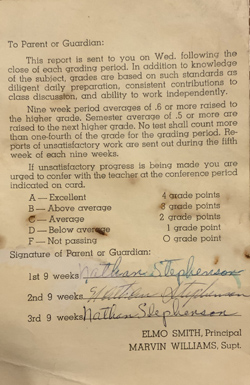 To Parent or Guardian:
This report is sent to you on Wed. following the
close of each grading period. In addition to knowledge
of the subject, grades are based on such standards as
diligent daily preparation, consistent contributions to
class discussion, and ability to work independently.
Nine week period averages of .6 or more raised to
the higher grade. Semester average of .5 or more are
raised to the next higher grade. No test shall count more
than one-fourth of the grade for the grading period. Re-
ports of unsatisfactory work are sent out during the fifth
week of each nine weeks.
If unsatisfactory progress is being made you are
urged to confer with the teacher at the conference period
indicated on card.
A — Excellent 4 grade points
B — Above average 3 grade points
C — Average 2 grade points
D — Below average 1 grade point
F — Not passing O grade points
Signature of Parent or Guardian:
1st 9 weeks Nathan Stephenson
2nd 9 weeks Nathan Stephenson
3rd 9 weeks Nathan Stephenson
ELMO SMITH, Principal
MARVIN WILLIAMS, Supt.